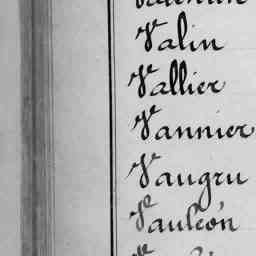 Valentin
Valin
Vallier
Vannier
Vaugru
Vauléon